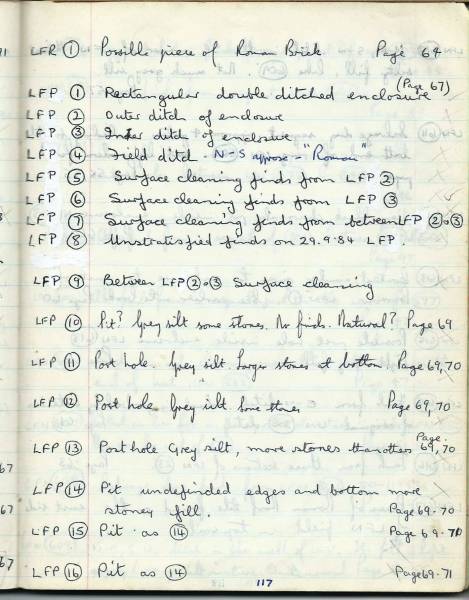 LFR ① Possible piece of Roman Brick. Page 64
(Page 67)
LFP ① Rectangular double ditched enclosure
LFP ② Outer ditch of enclosure
LFP ③ Inner ditch of enclosure
LFP ④ Field ditch. N-S approx - "Roman"
LFP ⑤ Surface cleaning finds from LFP ②
LFP ⑥ Surface cleaning finds from LFP ③
LFP ⑦ Surface cleaning finds from between LFP ②+③
LFP ⑧ Unstratisfied finds on 29.9.84 LFP.
LFP ⑨ Between LFP ②+③ Surface cleaning
LFP ⑩ Pit? Grey silt some stones. No finds. Natural? Page 69
LFP ⑪ Post hole. Grey silt larger stones at bottom Page 69,70
LFP ⑫ Post hole Grey silt some stones Page 69,70
Page.
LFP ⑬ Post hole Grey silt, more stones than others 69,70
67
LFP ⑭ Pit undefinded edges and bottom more
67
stoney fill. Page 69.70
LFP ⑮ Pit as ⑭ Page 69.70
67
LFP ⑯ Pit as ⑭ Page 69.71
117